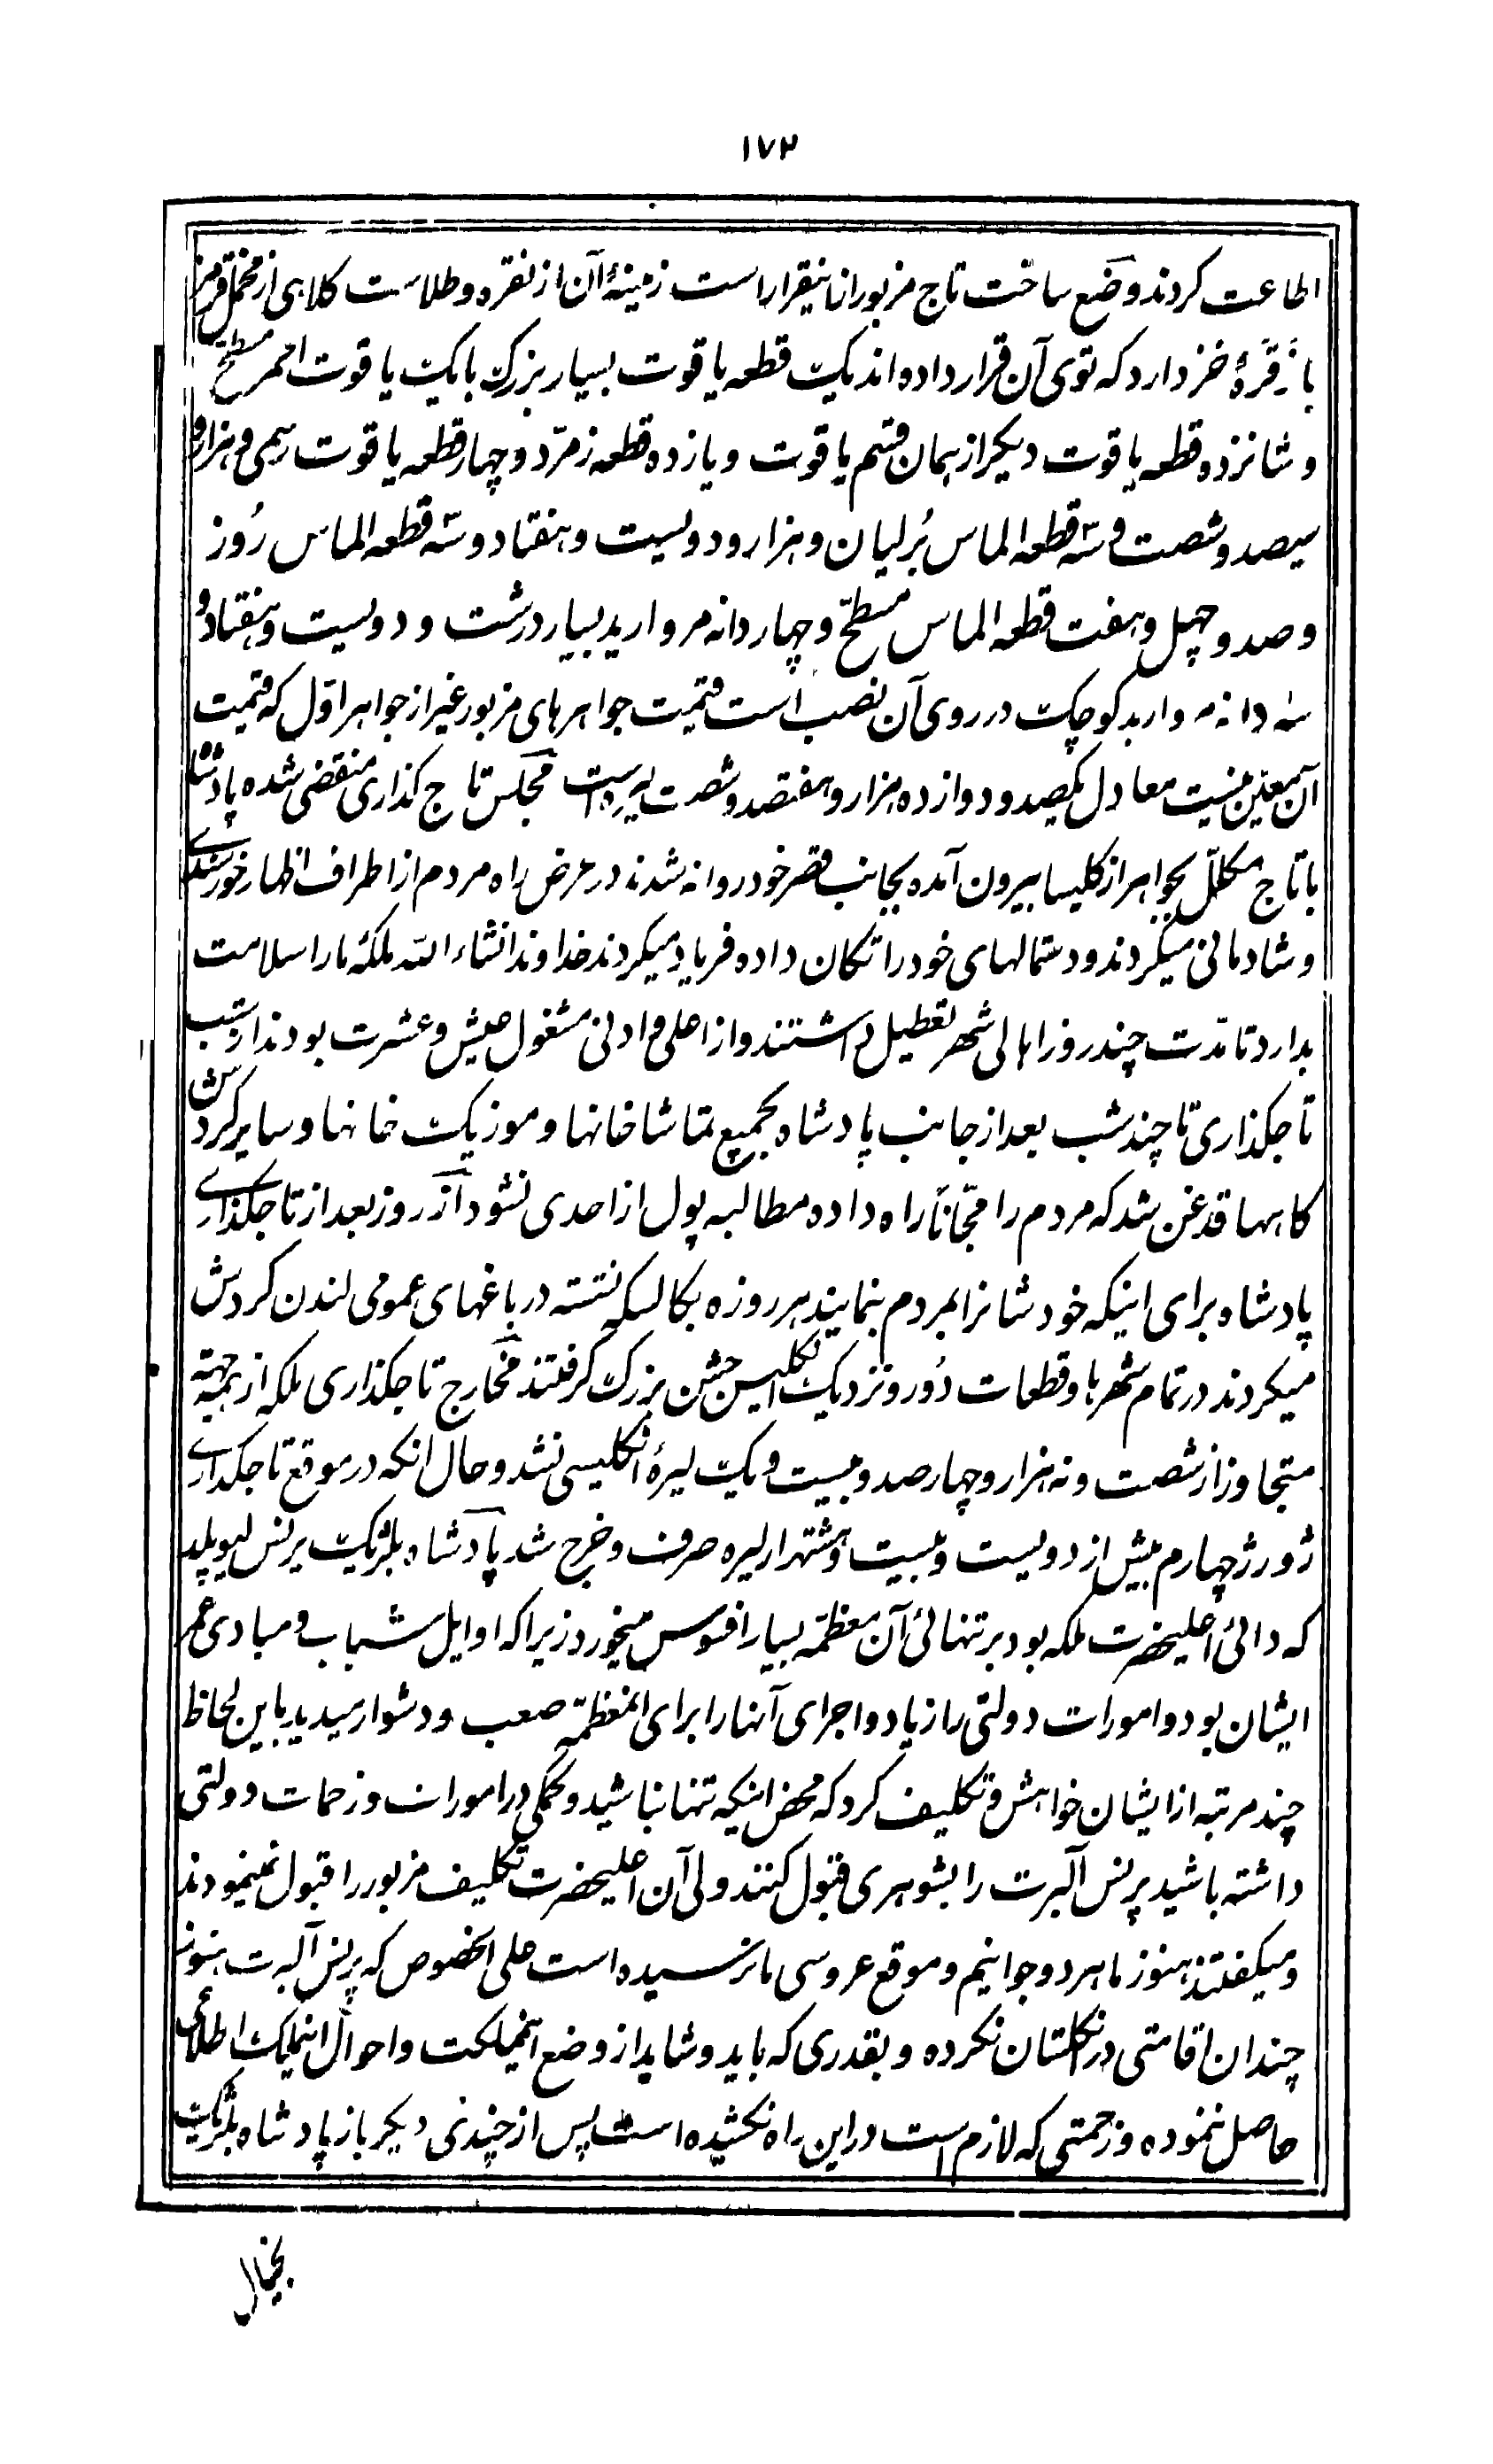 ۱۷۳
اطاعت کردند وضع ساخت تاج مزبور از اینقرار است زمینهٔ آن از نقره و طلاست کلاهی از مخمل قرمز
با زقرهٔ خز دارد که توی آن قرار داده اند یک قطعه یاقوت بسیار بزرگ با یک یاقوت احمر مسطح
و شانزده قطعه یاقوت دیگر از همان قسم یاقوت و یازده قطعه زمرّد و چهار قطعه یاقوت رسمی و هزار و
سیصد و شصت و سّه قطعه الماس بُرلیان و هزار و دویست و هفتاد و سّه قطعه الماس رُوز
و صد و چهل و هفت قطعه الماس مسطّح و چهار دانه مروارید بسیار درشت و دویست و هفتاد و
سه دانه مروارید کوچک در روی آن نصب است قیمت جواهرهای مزبور غیر از جواهر اوّل که قیمت
آن معیّن نیست معادل یکصد و دوازده هزار و هفتصد و شصت لیره است مجلس تاج گذاری منقضی شده پادشاه
با تاج مکلّل بجواهر از کلیسا بیرون آمده بجانب قصر خود روانه شدند در عرض راه مردم از اطراف اظهار خورسندی
و شادمانی میکردند و دستمالهای خود را تکان داده فریاد میکردند خداوند انشاء الله ملکهٔ ما را سلامت
بدارد تا مدّت چند روز اهالی شهر تعطیل داشتند و از اعلی و ادنی مشغول عیش و عشرت بودند از شب
تاجگذاری تا چند شب بعد از جانب پادشاه بجمیع تماشاخانها و موزیک خانها و سایر گردش
کاهها قدغن شد که مردم را مجّاناً راه داده مطالبه پول از احدی نشود از روز بعد از تاجگذاری
پادشاه برای اینکه خودشانرا بمردم بنمایند هر روزه بکالسکه نشسته در باغهای عمومی لندن گردش
میکردند در تمام شهرها و قطعات دُور و نزدیک انگلیس جشن بزرگ گرفتند مخارج تاجگذاری ملکه از همه جهته
متجاوز از شصت و نه هزار و چهارصد و بیست و یک لیرهٔ انگلیسی نشد و حال انکه در موقع تاجگذاری
ژورژ چهارم بیش از دویست و بیست و هشتهزار لیره صرف و خرج شد پادشاه بلژیک پرنس لیوپلد
که دائی اعلیحضرت ملکه بود بر تنهائی آن معظمّه بسیار افسوس میخورد زیرا که اوایل شباب و مبادی عمر
ایشان بود و امورات دولتی را زیاد و اجرای آنها را برای انمعظمّه صعب و دشوار میدید باین لحاظ
چند مرتبه از ایشان خواهش و تکلیف کرد که محض اینکه تنها نباشید و کمکی در امورات و زحمات دولتی
داشته باشید پرنس آلبرت را بشوهری قبول کنند ولی آن اعلیحضرت تکلیف مزبور را قبول نمینمودند
و میگفتند هنوز ما هر دو جوانیم و موقع عروسی ما نرسیده است علی الخصوص که پرنس آلبرت هنوز
چندان اقامتی در انگلستان نکرده و بقدری که باید و شاید از وضع اینمملکت و احوال اینملک اطلاعی
حاصل ننموده و زحمتی که لازم است در این راه نکشیده است پس از چندی دیگر باز پادشاه بلژیک
بخیال